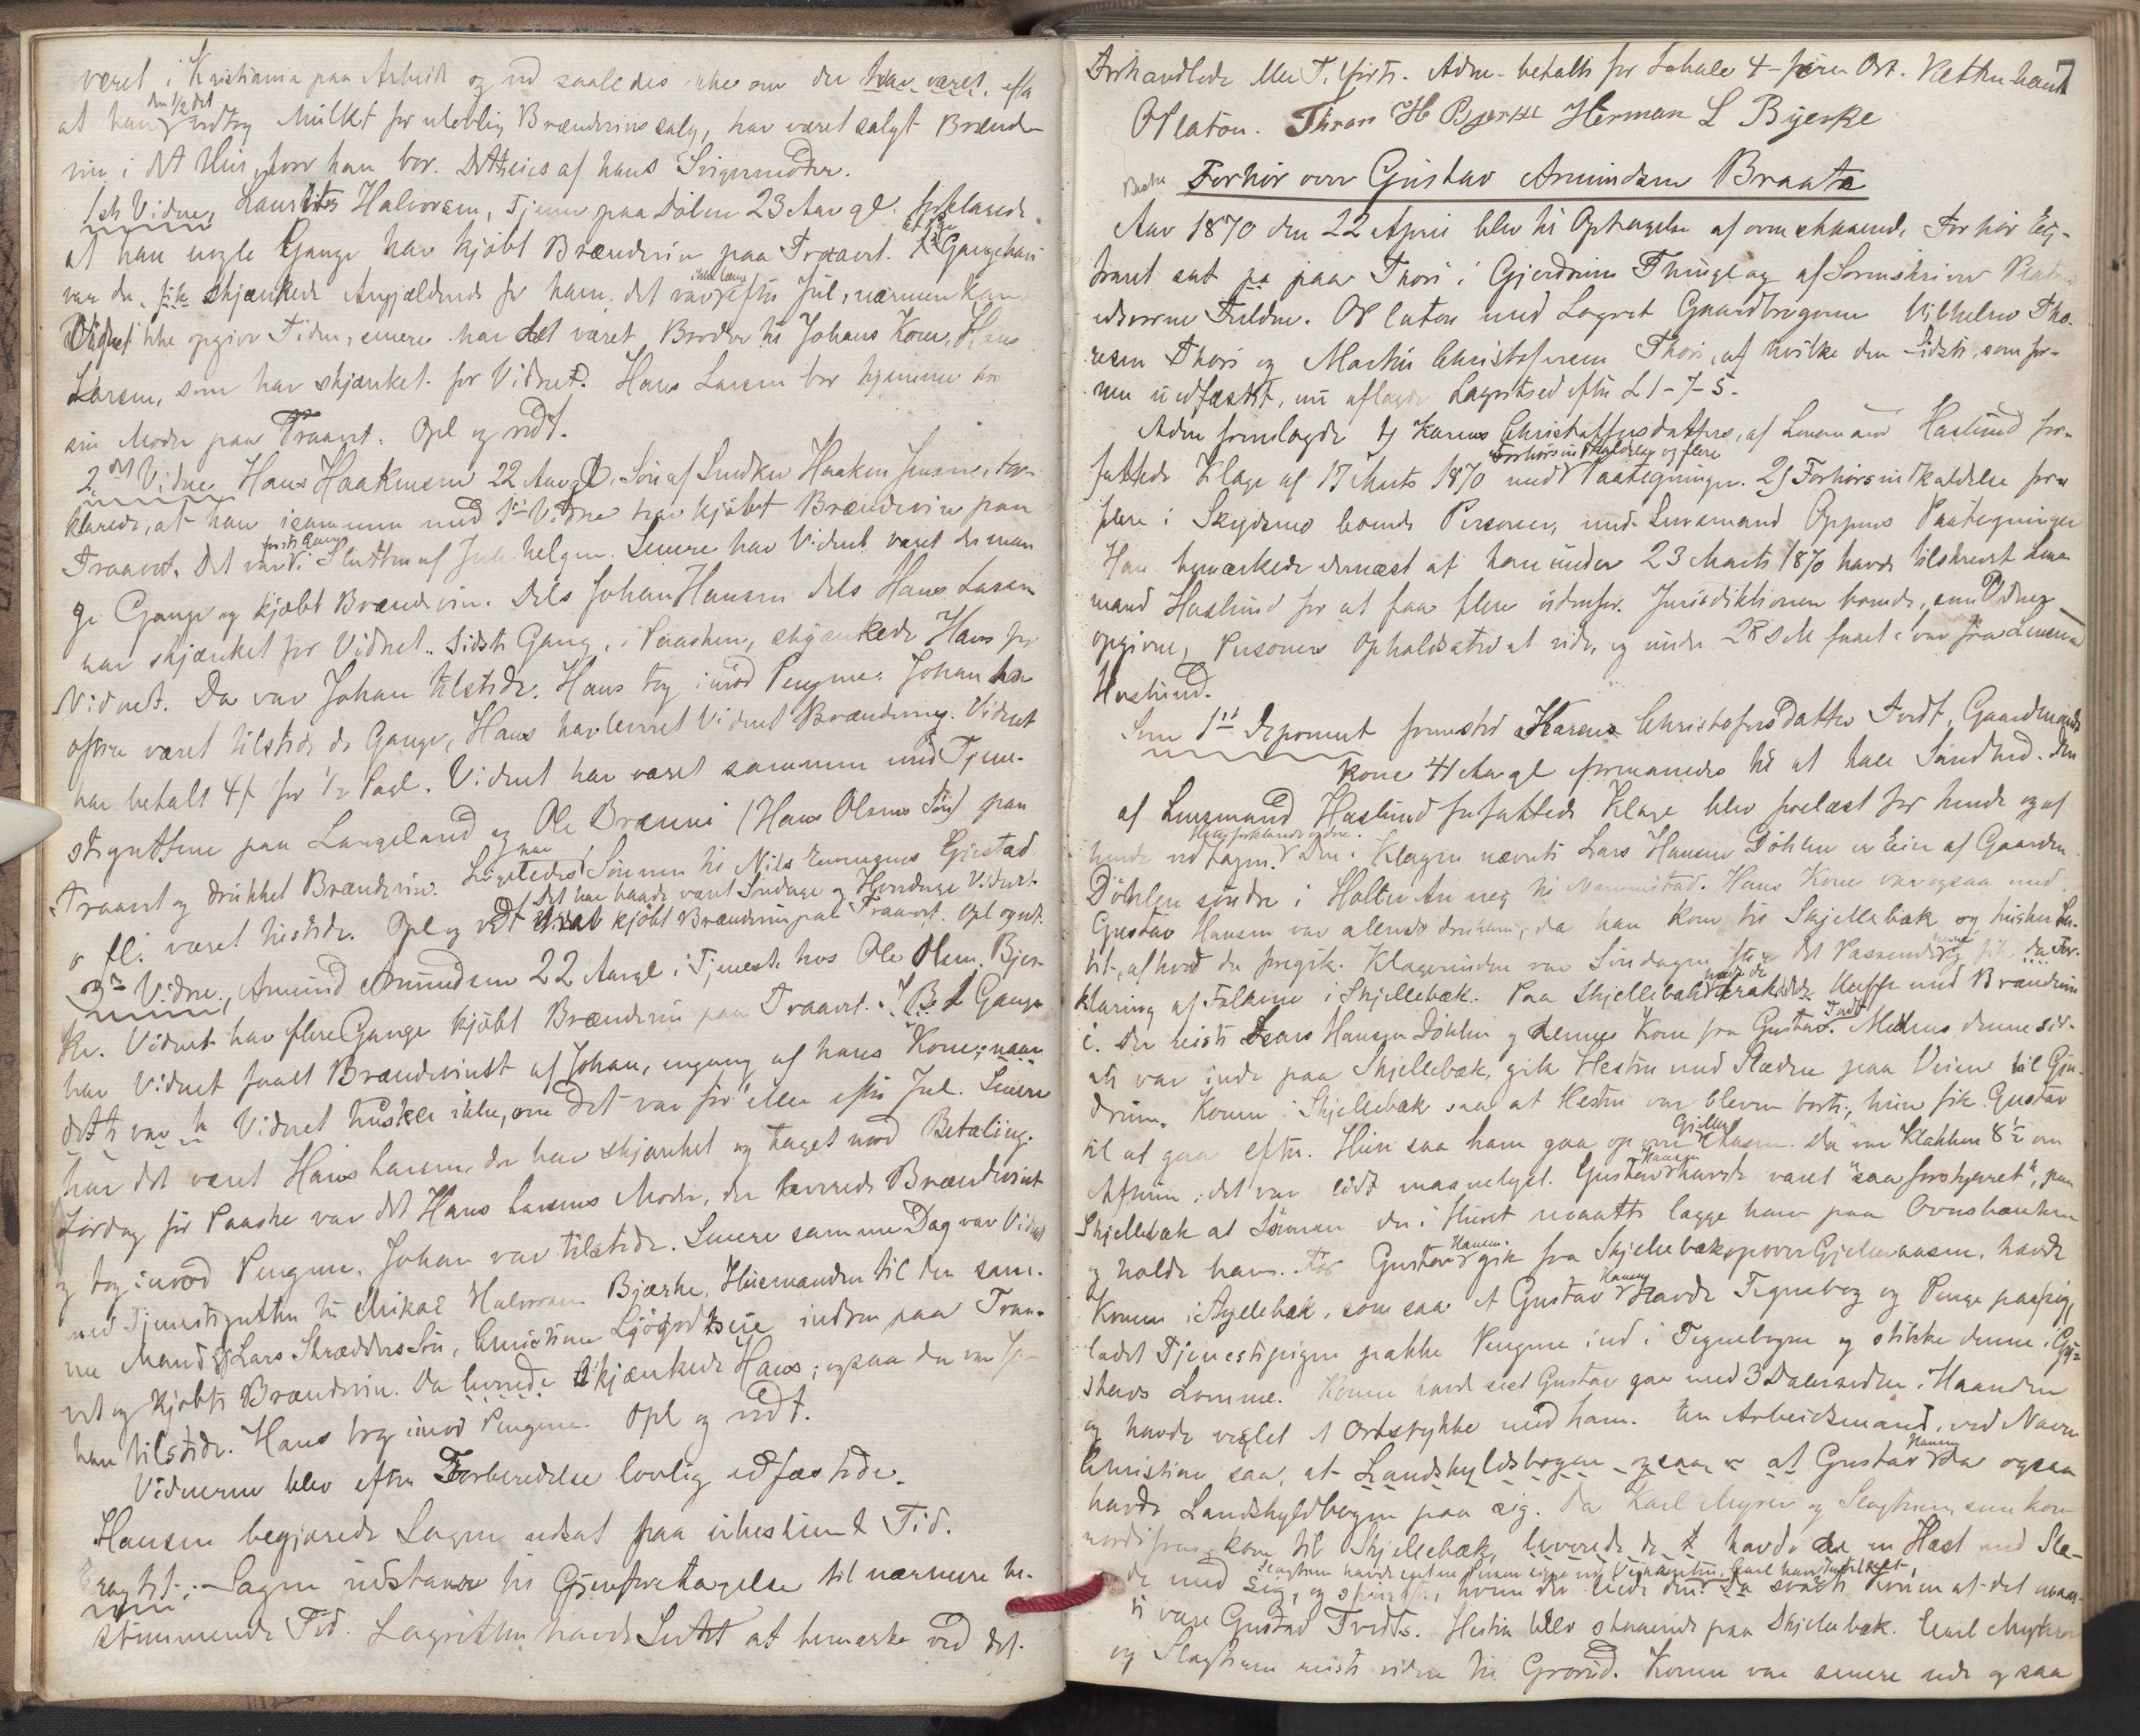 været i Kristiania paa Arbeide og ved saaledes ikke om der har været, efter
at han den 1/2 det vedtog Mulkt for ulovlig Brændevinssalg, har været solgt Brænde-
vin i det Huus, hvor han bor. Dette eies af hans Svigermoder.
1ste Vidne, Lauritz Halvorsen, tjener paa Døhlen 23 Aar gl. forklarede
at han nogle Gange har kjøbt Brændevin paa Traaret. Gange han
var der, fik skjænkede Angjældende for ham, det var ikke længe efter Jul, nærmere kan
Vidnet ikke opgive Tiden, senere har det været Broder til Johans Kone, Hans
Larsen, som har skjænket for Vidnet. Hans Larsen bor hjemme hos
sin Moder paa Traaret. Opl og vedt.
2det Vidne Hans Haakensen 22 Aar gl, Søn af Haaken Jensen, for-
klarede, at han isammen med 1ste Vidne har kjøbt Brændevin paa
Traaret. Det var første Gang i Slutten af Julehelgen. Senere har Vidnet været der man-
ge Gange og kjøbt Brændevin. Dels Johan Hansen dels Hans Larsen
har skjænket for Vidnet. Sidste Gang, i Paasken, skjænkede Hans for
Vidnet. Da var Johan tilstede. Hans tog imod Pengene. Johan har
oftere været tilstede de Gange, Hans har leveret Vidnet Brændevin. Vidnet
har betalt 4 f for 1/2 Pægl. Vidnet har været sammen med Tjene-
stegutten paa Langeland og Ole Brænni (Hans Olsens Søn) paa
Traaret og drukket Brændevin. Ligeledes har Sønnen til Nils Gjestad
o fl. været tilstede. Det har baade været Søndage og Hverdage Vidnet
har kjøbt Brændevin paa Traaret. Opl og vedt.
3die Vidne, Amund Amundsen 22 Aar gl i Tjeneste hos Ole Olsen Bjer-
ke. Vidnet har flere Gange kjøbt Brændevin paa Traaret. Gange
har Vidnet faaet Brændevinet af Johan, engang af hans Kone; naar
dette var Vidnet husker ikke, om det var før eller efter Jul. Senere
har det været Hans Larsen, der har skjænket og taget mod Betaling.
Lørdag før Paaske var det Hans Larsens Moder, der leverede Brændevinet
og tog imod Pengene. Johan var tilstede. Senere samme Dag var Vidnet
med Tjenestegutten til Mikal Halvorsen Bjerke, Huusmanden til den sam-
me Mand og Lars Skrædders Søn, Christian indom paa Traa-
ret og kjøbte Brændevin. Da leverede skjænkede Hans; ogsaa da var Jo-
han tilstede. Hans tog imod Pengene. Opl og vedt.
Vidnerne blev efter Forberedelse lovlig edfæstede.
Hansen begjærede Sagen udsat paa ubestemt Tid.
Eragtet: Sagen udstaar til Gjenforetagelse til nærmere be-
stemmende Tid. Lagretten havde Intet at bemærke ved det
Forhandlede. Adm. betalte for Lokale 4 - fire Ort. Retten hævet
Platou. Thron H Bjerke Herman L Bjerke
Forhør over Gustav Amundsen Braate
Aar 1870 den 22 April blev til Optagelse af ovenstaaende Forhør Ex-
traret sat paa Thori i Gjerdrums Thinglag af Sorenskriver Platous
edsvorne Fuldm. O Platou med Lagret Gaardbrugerne Vilhelm Tho-
resen Thori og Martin Christofersen Thori, af hvilke den sidste, som før-
ren uedfæstet, nu aflagde Lagretsed efter L 1-7-5.
Adm fremlagde 1) Karens Christoffersdatters, af Lensmand Haslund for-
fattede Klage af 17 Marts 1870 med Forhørsindkaldelse og flere Paategninger. 2) Forhørsindkaldelse for
flere i Skydsmo boende Personer, med Lensmand Oppens Paategninger
Han bemærkede dernæst at han under 23 Marts 1870 havde tilskrevet Lens-
mand Haslund for at faae flere udenfor Jurisdiktionen boende, som Vidner
opgivne, Personers Opholdssted at vide, og under 28 s M faaet Svar fra Lensmand
Haslund.
Som 1ste Deponent fremstod Karen Christofersdatter Tvedt, Gaardmands-
kone 41 Aar gl formanedes til at tale Sandhed. Den
af Lensmand Haslund forfattede Klage blev forelæst for hende og af
hende vedtagen. Hun forklarede videre. Den i Klagen nævnte Lars Hansen Døhlen er Eier af Gaarden
Døhlen søndre i Holter Annex til Nannestad. Hans Kone var ogsaa med.
Gustav Hansen var allerede drukken, da han kom til Skjellebæk og husker In-
tet, af hvad der foregik. Klagerinden var Søndagen efter det Passerede og fik da For-
klaring af Folkene i Skjellebæk. Paa Skjellebæk trakteredes Kaffe med Brændevin
i. Der reiste Lars Hansen Døhlen og dennes Kone fra Gustav Tvedt. Medens denne sid-
ste var inde paa Skjellebæk, gik Hesten med Slæden paa Veien til Gjer-
drum. Konen i Skjellebæk saa at Hesten var bleven borte, hun fik Gustav
til at gaa efter. Hun saa ham gaa op over Gjellenaasen. Da var Klokken 8 1/2 om
Aftenen; det var lidt maanelyst. Gustav Hansen havde været "saa forstyrret", paa
Skjellebæk at Sønnen der i Huset maatte lægge ham paa Ovnsbænken
og holde ham. Før Gustav Hansen gik fra Skjellebæk op over Gjellenaasen, havde
Konen i Skjellebæk, som saa at Gustav Hansen havde Tegnebog og Penge paa sig,
ladet Tjenestepigen pakke Pengene ind i Tegnebogen og stikke denne i Gu-
stavs Lomme. Konen havde seet Gustav gaa med 3 Dalersedler i Haanden
og havde vexlet et Ortstykke med ham. En Arbeidsmand, ved Navn
Christian saa, at Landskyldsbogen ogsaa at Gustav Hansen da ogsaa
havde Landskyldbogen paa sig. Da Karl Myrer og Slagteren, som kom
nordifra, kom til Skjellebæk, leverede de havde de en Hest med Slæ-
de med sig, og spurgte, hvem der eiede den. Da svarte Konen at det maat-
te være Gustav Tvedts. Hesten blev staaende paa Skjellebæk. Karl Myrer
og Slagteren reiste videre til Grorud. Konen var senere ude og saa